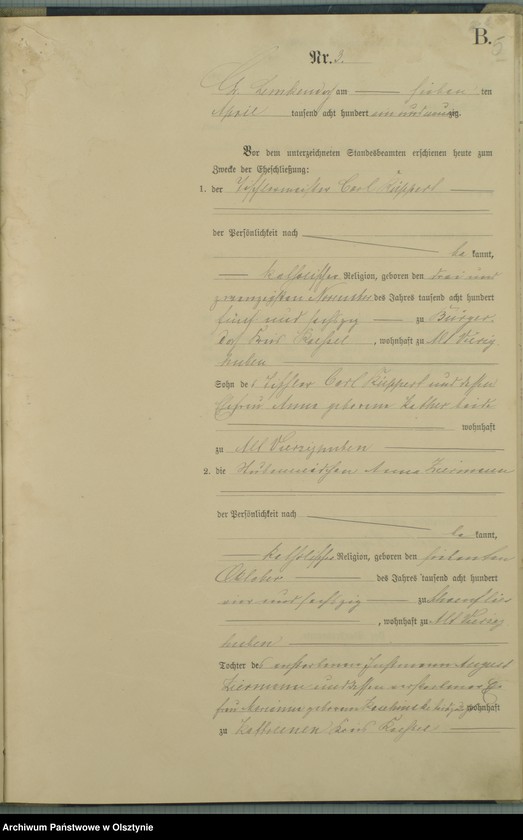 B.
5
Nr. 3.
am sieben ten
April tausend acht hundert ein und neunzig.
Vor dem unterzeichneten Standesbeamten erschienen heute zum
Zwecke der Eheschließung:
1. der Tischlermeister Carl Ruppert
der Persönlichkeit nach
be kannt,
katholischer Religion, geboren den drei und
zwanzigsten November des Jahres tausend acht hundert
fünf und sechzig zu Bürger
dorf Kreis Roessel, wohnhaft zu Alt Vierzig
huben
Sohn des Tischler Carl Ruppert und dessen
Ehefrau Anna geborene beide
wohnhaft
zu Alt Vierzighuben
2. die Anna Ziermann
der Persönlichkeit nach
be kannt,
katholischer Religion, geboren den siebenten
Oktober des Jahres tausend acht hundert
ein und sechzig zu
, wohnhaft zu Alt Vierzig
huben
Tochter des verstorbenen Instmann August
Ziermann und dessen verstorbener Ehe
frau geborene wohnhaft
zu Kreis Roessel
Archiwum Państwowe w Olsztynie